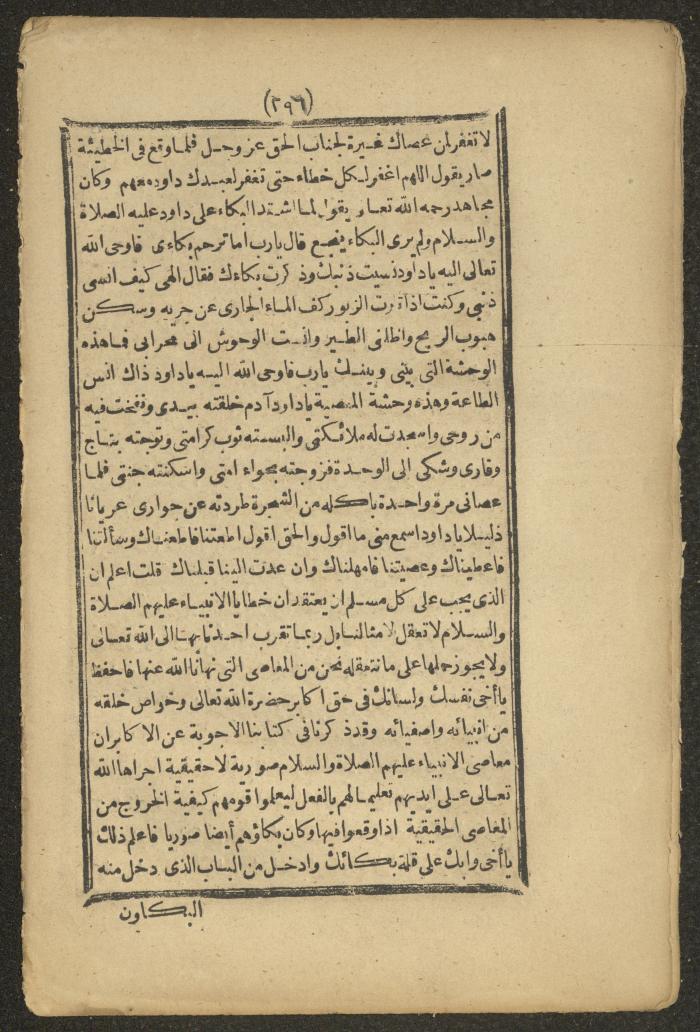 (٢٩٦)
لا تغفر لمن عصاك غيرة لجناب الحق عز وجل فلما وقع فى الخطيئة
صار يقول اللهم اغفر لكل خطاء حتى تغفر لعبدك داود معهم وكان
مجاهد رحمه الله تعالى يقول لما اشتد البكاء على داود عليه الصلاة
والسلام ولم ير البكاء ينجع قال يارب اما ترحم بكاءى فاوحى الله
تعالى اليه ياداود نسيت ذنبك وذكرت بكاءك فقال الهى كيف انسى
ذنبى وكنت اذا قرأت الزبور كف الماء الجارى عن جريه وسكن
هبوب الريح واظلنى الطير وانست الوحوش الى محرابى فما هذه
الوحشة التى بينى وبينك يارب فاوحى الله اليه ياداود ذاك انس
الطاعة وهذه وحشة المعصية ياداود آدم خلقته بيدى ونفخت فيه
من روحى واسجدت له ملائكتى والبسته ثوب كرامتى وتوجته بتاج
وقارى وشكى الى الوحدة فزوجته بحواء امتى واسكنته جنتى فلما
عصانى مرة واحدة باكله من الشجرة طردته عن جوارى عريانا
ذليلا ياداود اسمع منى ما اقول والحق اقول اطعتنا فاطعناك وسألتنا
فاعطيناك وعصيتنا فامهلناك وان عدت الينا قبلناك قلت اعلم ان
الذى يجب على كل مسلم ان يعتقد ان خطايا الانبياء عليهم الصلاة
والسلام لا تعقل لامثالنا بل ربما تقرب احدنا بها الى الله تعالى
ولا يجوز حملها على ما نتعقله نحن من المعاصى التى نهانا الله عنها فاحفظ
يا أخى نفسك ولسانك فى حق اكابر حضرة الله تعالى وخواص خلقه
من انبيائه واصفيائه وقد ذكرنا فى كتابنا الاجوبة عن الاكابر ان
معاصى الانبياء عليهم الصلاة والسلام صورية لا حقيقية اجراها الله
تعالى على ايديهم تعليما لهم بالفعل ليعلموا قومهم كيفية الخروج من
المعاصى الحقيقية اذا وقعوا فيها وكان بكاؤهم أيضا صوريا فاعلم ذلك
يا أخى وابك على قلة بكائك وادخل من الباب الذى دخل منه
البكاون